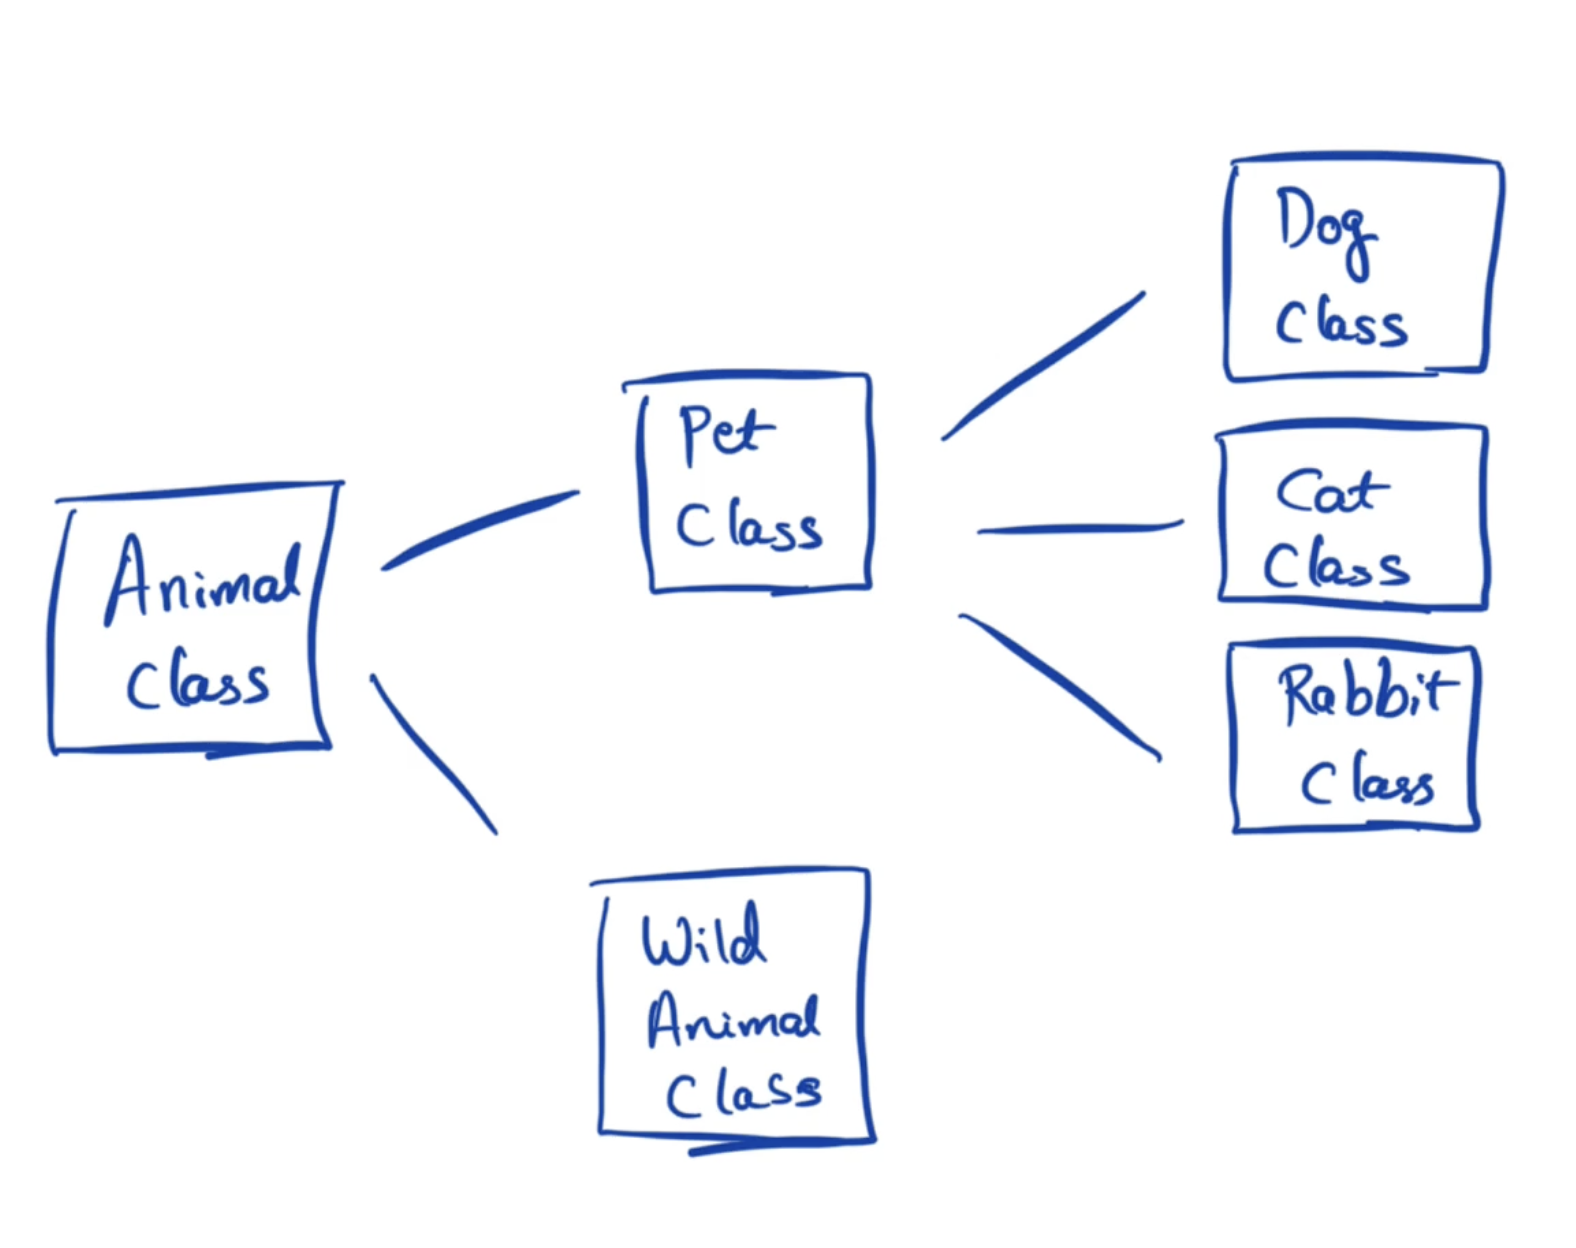 Animal
Class
Pet
Class
Wild
Animal
Class
Dog
Class
Cat
Class
Rabbit
Class